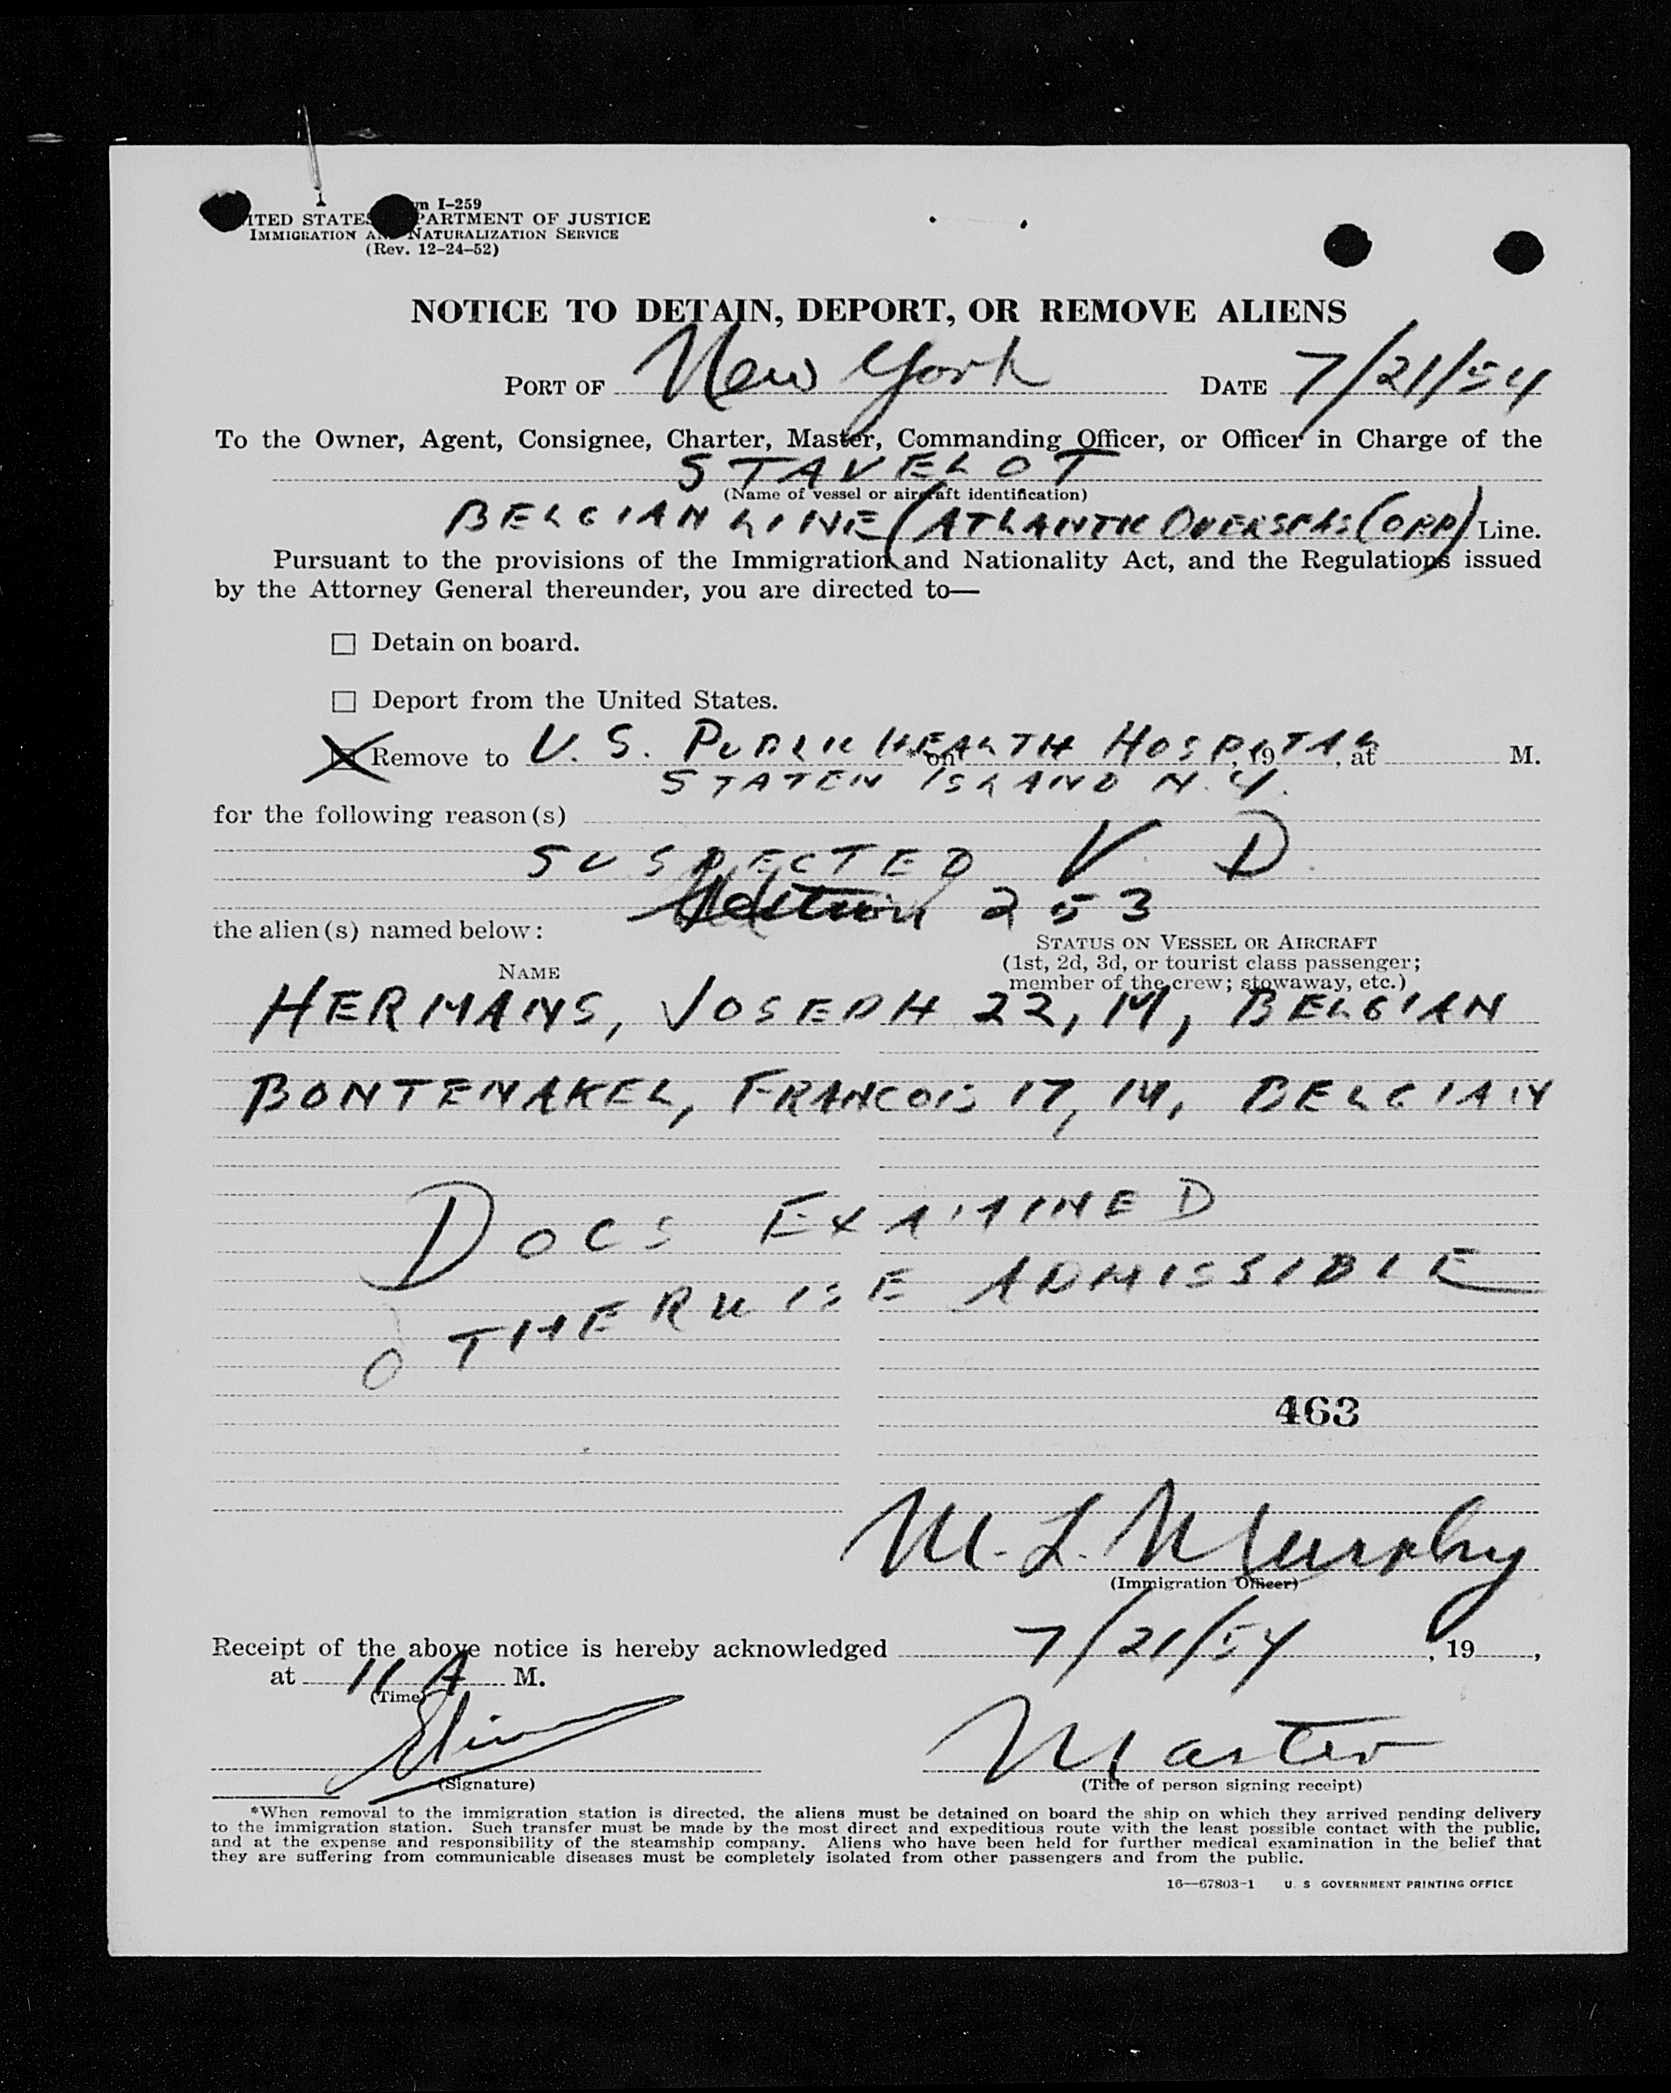 Form I-259
UNITED STATES DEPARTMENT OF JUSTICE
IMMIGRATION AND NATURALIZATION SERVICE
(Rev. 12-24-52)
NOTICE TO DETAIN, DEPORT, OR REMOVE ALIENS
PORT OF New York DATE 7/21/54
To the Owner, Agent, Consignee, Charter, Master, Commanding Officer, or Officer in Charge of the
STAVELOT
(Name of vessel or aircraft identification)
BELGIAN LINE (ATLANTIC OVERSEAS CORP) Line.
Pursuant to the provisions of the Immigration and Nationality Act, and the Regulations issued
by the Attorney General thereunder, you are directed to—
Detain on board.
Deport from the United States.
Remove to U. S. PUBLIC HEALTH HOSPITAL * on , 19 , at M.
STATEN ISLAND N.Y.
for the following reason(s)
SUSPECTED V. D.
Section 253
the alien(s) named below:
STATUS ON VESSEL OR AIRCRAFT
(1st, 2d, 3d, or tourist class passenger;
NAME member of the crew; stowaway, etc.)
HERMANS, JOSEPH 22, M, BELGIAN
BONTEMAKEL, FRANCOIS 17, M, BELGIAN
DOCS EXAMINED
OTHERWISE ADMISSIBLE
463
M. L. Murphy
(Immigration Officer)
Receipt of the above notice is hereby acknowledged 7/21/54 , 19 ,
at 11 A M.
(Time)
Master
(Signature) (Title of person signing receipt)
*When removal to the immigration station is directed, the aliens must be detained on board the ship on which they arrived pending delivery
to the immigration station. Such transfer must be made by the most direct and expeditious route with the least possible contact with the public,
and at the expense and responsibility of the steamship company. Aliens who have been held for further medical examination in the belief that
they are suffering from communicable diseases must be completely isolated from other passengers and from the public.
16—67803-1 U. S. GOVERNMENT PRINTING OFFICE